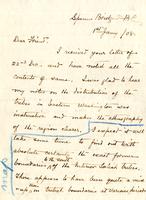 Spences Bridge B.C.
1st Jany / 08.
Dear Friend.
I received your letter of
22nd Dec. and have noted all the
contents of same. I was glad to hear
my notes on the Distribution of the
tribes in Western Washington was
and makes the ethnography
of the region clearer. I expect it will
take some time to find out with
absolute certainty the exact former
boundaries of the Interior Salish tribes.
There appears to have been quite a
tribal boundaries at various periods
map